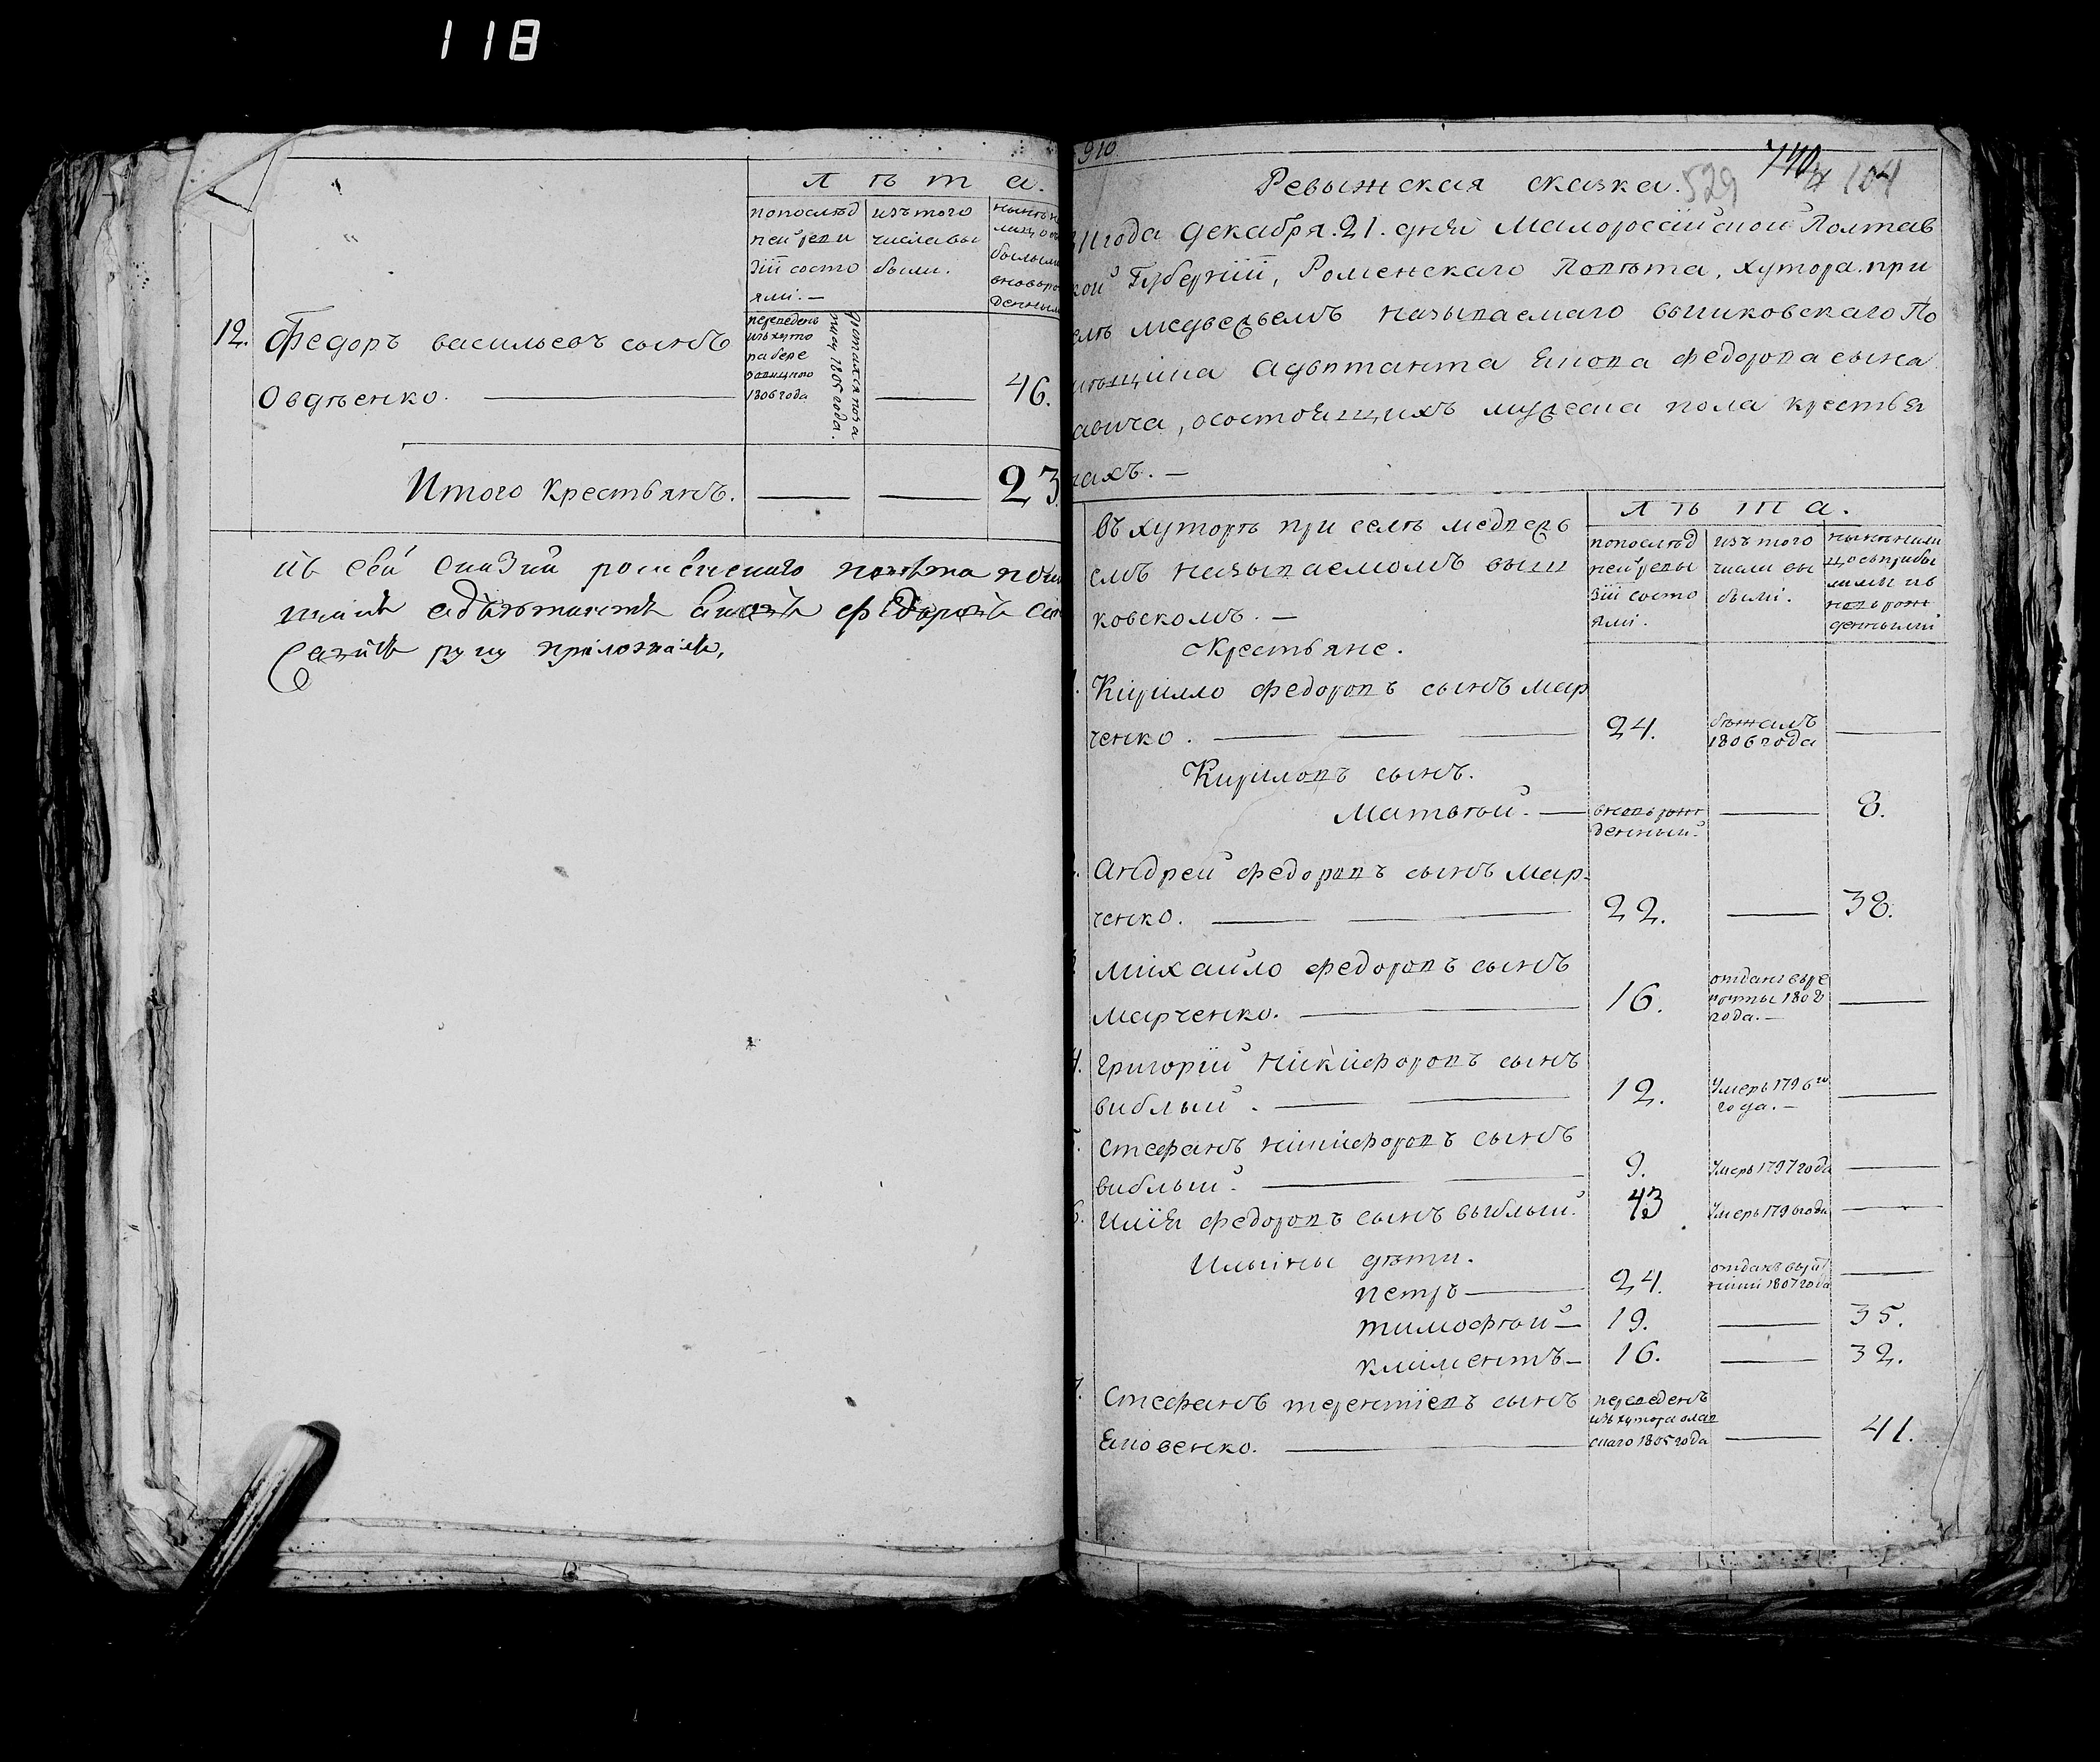 118
Л ѣ т а.
попослѣд
ней реви
зіи состо
яли. —
изъ того
числа вы
были.
12. Федоръ васильевъ сынъ
Овдѣенко.
переведенъ
изъ хуто
ра бере
1806 года
1805 года.
46.
Итого Крестьянъ. 23
къ сей сказки роменского повѣта
адъютантъ федоровъ
руку приложилъ,
910
Ревыжская сказка. 529 740 104
11 года Декабря. 21. дня Малороссійской Полтав
кой Губерніи, Роменскаго Повѣта, хутора при
елѣ медвежьемъ называемаго вышковскаго По
мѣщика Адъютанта Якова федорова сына
авича, осостоящихъ мужеска пола крестья
нахъ. —
въ хуторѣ при селѣ медвежъ
емъ называемомъ выш
ковскомъ. —
Крестьяне.
Л ѣ т а.
попослѣд
ней реви
зіи состо
яли.
изъ того
числа вы
были.
нынѣ нали
цо съ прибы
лыми и в
новь рож
денными
1. Кирило федоровъ сынъ мар
ченко. 24. бѣжалъ
1806 года
Кириловъ сынъ.
Матвѣй. — вновь рож
денный. 8.
Андрей федоровъ сынъ мар-
ченко. 22. 38.
михайло федоровъ сынъ
марченко. 16. отданъ в ре
круты 1802
года. —
4. григорій никифоровъ сынъ
виблый. 12. Умеръ 1796 го
года. —
стефанъ никифоровъ сынъ
виблый. 9. Умеръ 1797 года
6. Илія федоровъ сынъ выблый. 43. Умеръ 1796 года
Ильины дѣти.
петръ 24. отданъ въ
1807 года
тимофѣй — 19. 35.
климентъ — 16. 32.
7. Стефанъ терентіевъ сынъ
Яковенко. переведенъ
изъ хутора
1805 года 41.